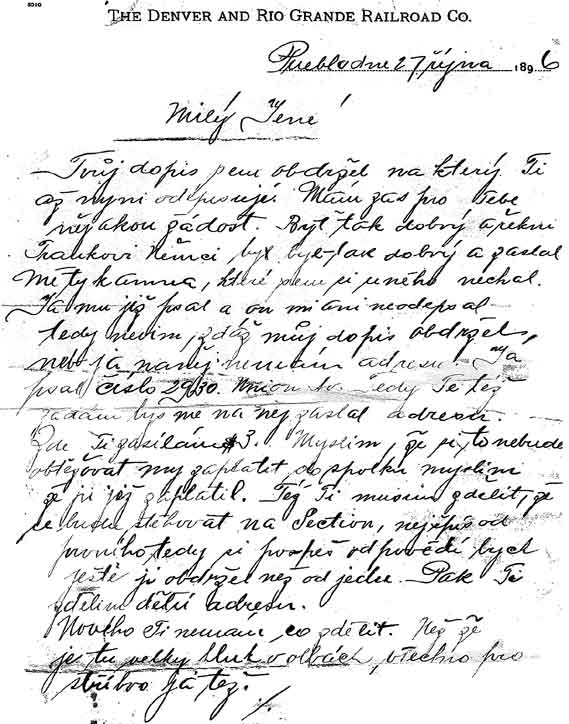 THE DENVER AND RIO GRANDE RAILROAD CO.
Pueblo dne 27 října 1896
Milý Jene
Tvůj dopis jsem obdržel na který Ti
až nyni odepisuji. Mám zas pro Tebe
nějakou žádost. Byl tak dobrý a řekni
Frankovi Němci byl tak dobrý a zaslal
mě ty kamna, které jsem si u něho nechal.
Já mu již psal a on mi ani neodepsal
tedy nevim, zdaž můj dopis obdržel,
nebo já na něj nemám adresu. Já
psal čislo 2930. Union Av. Tedy Tě též
žádám bys mě na něj zaslal adresu.
Zde Ti zasilám $3. Myslim, že si to nebude
obtěžovat my zaplatit do spolku myslim
že si již zaplatil. Též Ti musim zdělit, že
se budu stěhovat na Section, nejspiš od
prvniho, tedy si pospěš odpovědi bych
ještě ji obdržel než od jedu. Pak Ti
zdělim dělni adresu.
Nového Ti nemám co zdělit. Než že
je tu velky hluk o volbách, všechno pro
střibro já též.